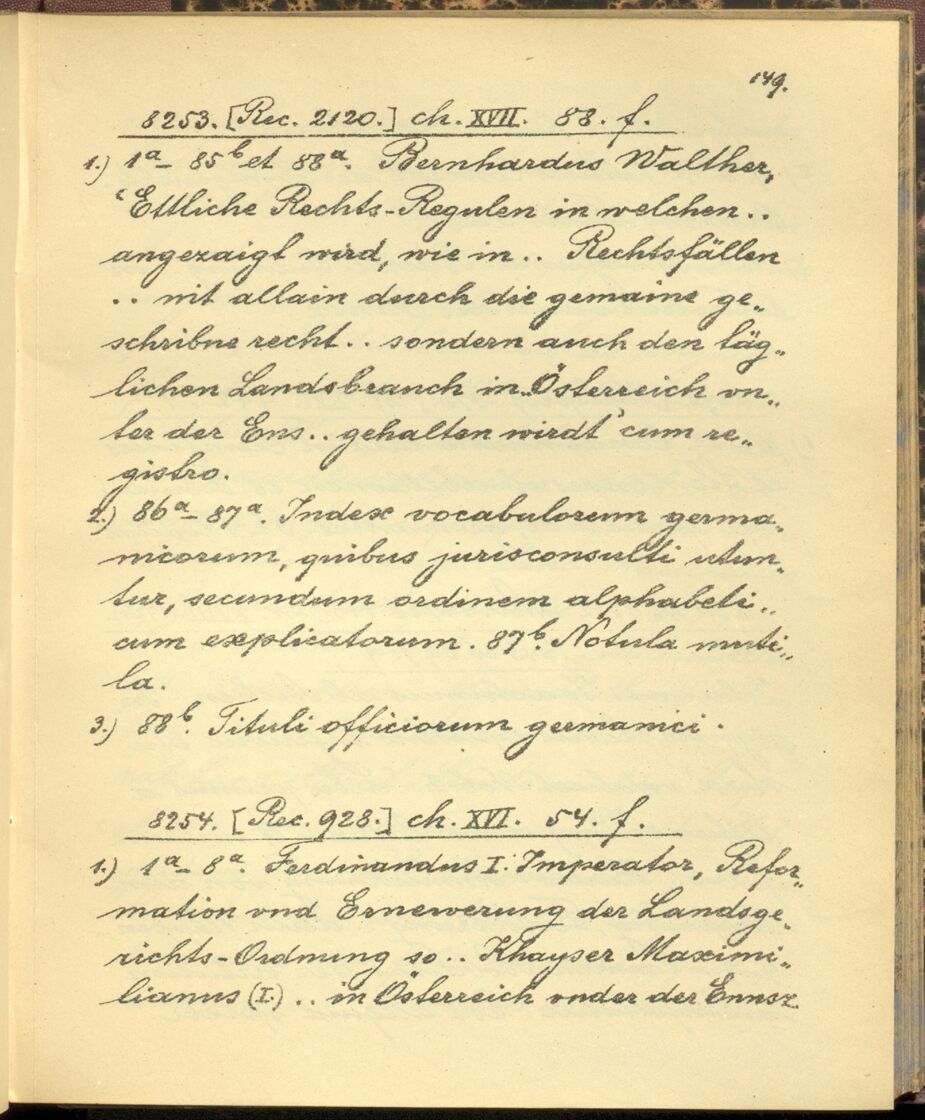 149.
8253. [Rec. 2120.] ch. XVII. 88. f.
1.) 1a – 85b et 88a. Bernhardus Walther,
‘Ettliche Rechts-Regulen in welchen..
angezaigt wird, wie in .. Rechtsfällen
.. nit allain durch die gemaine ge„
schribne recht .. sondern auch den täg„
lichen Landsbrauch in..Österreich vn„
ter der Ens .. gehalten wirdt’ cum re„
gistro.
2.) 86a – 87a. Index vocabulorum germa„
nicorum, quibus jurisconsulti utun„
tur, secundum ordinem alphabeti„
cum explicatorum. 87b. Notula muti„
la.
3.) 88b. Tituli officiorum germanici.
8254. [Rec. 928.] ch. XVI. 54. f.
1.) 1a – 8a. Ferdinandus I. Imperator, Refor„
mation vnd Ernewerung der Landsge„
richts-Ordnung so .. Khayser Maximi„
lianus (I.) .. in Österreich vnder der Ennsz